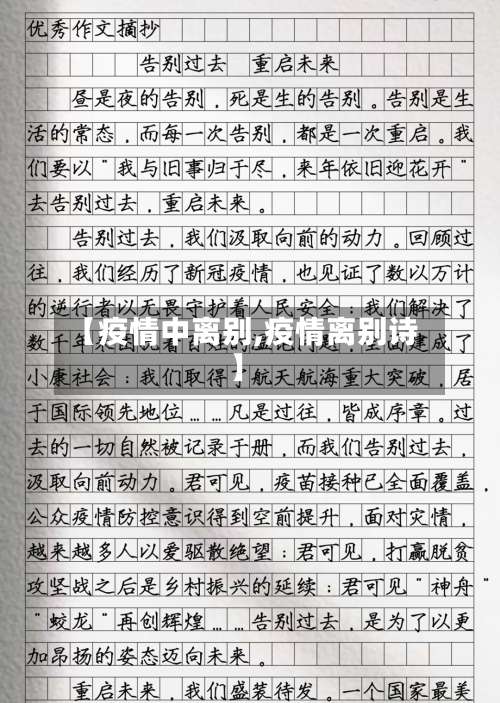 优秀作文摘抄
告别过去 重启未来
昼是夜的告别，死是生的告别。告别是生
活的常态，而每一次告别，都是一次重启。我
们要以"我与旧事归于尽，来年依旧迎花开"
去告别过去，重启未来。
告别过去，我们汲取向前的动力。回顾过
往，我们经历了新冠疫情，也见证了数以万计
的逆行者以无畏守护着人民安全：我们解决了
【疫情中离别,疫情离别诗
】
数千年
建成了
小康社会：我们取得了航天航海重大突破，居
于国际领先地位……凡是过往，皆成序章。过
去的一切自然被记录于册，而我们告别过去，
汲取向前动力。君可见，疫苗接种已全面覆盖，
公众疫情防控意识得到空前提升，面对灾情，
越来越多人以爱驱散绝望：君可见，打赢脱贫
攻坚战之后是乡村振兴的延续：君可见"神舟"
"蛟龙"再创辉煌……告别过去，是为了以更
加昂扬的姿态迈向未来。
重启未来，我们盛装待发。一个国家最美